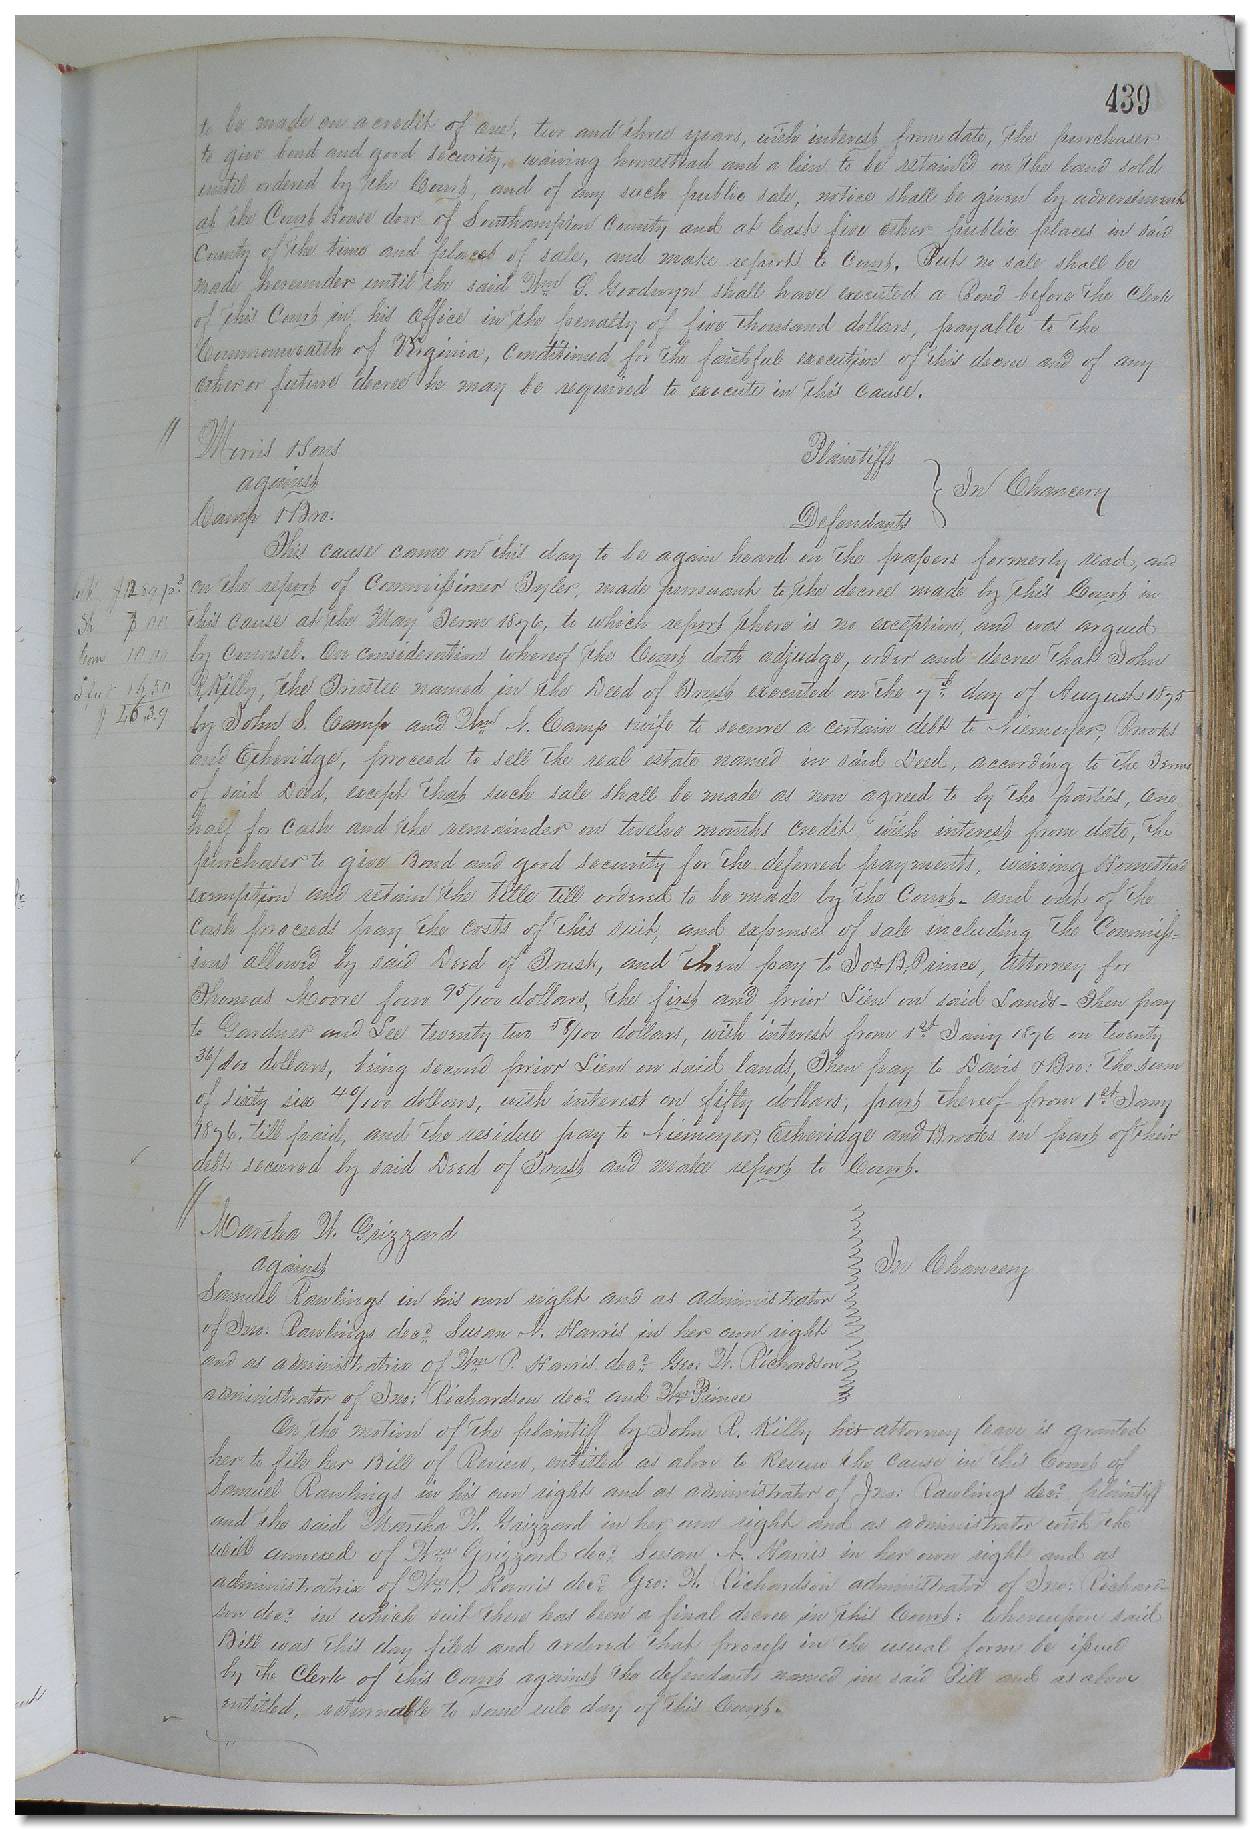 439
to be made on a credit of one, two and three years, with interest from date, the purchaser
to give bond and good security, waiving homestead and a lien to be retained on the land sold
until ordered by the Court, and of any such public sale, notice shall be given by advertisement
at the Court House door of Southampton County and at least five other public places in said
County of the time and place of sale, and make report to Court. But no sale shall be
made hereunder until the said Wm G. Goodwyn shall have executed a Bond before the Clerk
of this Court in his office in the penalty of five thousand dollars, payable to the
Commonwealth of Virginia, conditioned for the faithful execution of this decree and of any
other or future decree he may be required to execute in this cause.
" Morris & Sons Plaintiffs
against } In Chancery
Camp & Bro. Defendants
This cause came on this day to be again heard on the papers formerly read, and
on the report of Commissioner Tyler, made pursuant to the decree made by this Court in
this cause at the May Term 1876, to which report there is no exception, and was argued
by Counsel. On consideration whereof the Court doth adjudge, order and decree that John
R. Kilby, the Trustee named in the Deed of Trust executed on the 7th day of August 1875
by John S. Camp and Wm N. Camp wife to secure a certain debt to Niemeyer, Brooks
and Etheridge, proceed to sell the real estate named in said Deed, according to the Terms
of said Deed, except that such sale shall be made as now agreed to by the parties, One
half for cash and the remainder on twelve months credit with interest from date, the
purchaser to give Bond and good security for the deferred payments, waiving Homestead
exemption and retain the title till ordered to be made by the Court - and out of the
Cash proceeds pay the costs of this suit, and expenses of sale including the Commiss-
ions allowed by said Deed of Trust, and then pay to Jos B. Prince, attorney for
Thomas Moore four 95/100 dollars, the first and prior Lien on said Lands - Then pay
to Gardner and Lee twenty two 58/100 dollars, with interest from 1st Jany 1876 on twenty
36/100 dollars, being second prior Lien on said lands, Then pay to Davis & Bro: the sum
of sixty six 40/100 dollars, with interest on fifty dollars, part thereof from 1st Jany
1876, till paid, and the residue pay to Niemeyer, Etheridge and Brooks in part of their
debt secured by said Deed of Trust and make report to Court.
" Martha W. Grizzard
against In Chancery
Samuel Rawlings in his own right and as administrator
of Jno: Rawlings decd Susan A. Harris in her own right
and as administratrix of Wm P. Harris decd Geo: W. Richardson
administrator of Jno: Richardson decd and Prince
On the motion of the plaintiff by John R. Kilby her attorney leave is granted
her to file her Bill of Review, entitled as above to Review the cause in this Court of
Samuel Rawlings in his own right and as administrator of Jno: Rawlings decd plaintiff
and the said Martha W. Grizzard in her own right and as administrator with the
will annexed of Wm Grizzard decd Susan A. Harris in her own right and as
administratrix of Wm P. Harris decd Geo: W. Richardson administrator of Jno: Richard-
son decd in which suit there has been a final decree in this Court: Whereupon said
Bill was this day filed and ordered that process in the usual form be issued
by the Clerk of this Court against the defendants named in said Bill and as above
entitled, returnable to some rule day of this Court.